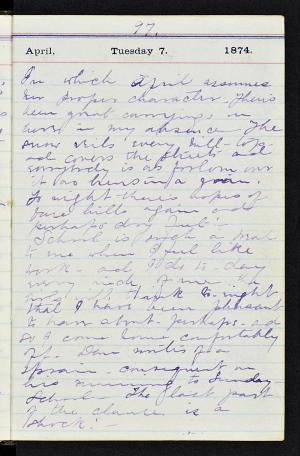 97.
April, Tuesday 7. 1874.
In which April assumes
her proper character. There's
been great carryings on
here in my absence. The
snow veils every hill-top,
and covers the streets and
everybody is as forlorn over
it as
To night there's hopes of
bare hills again and
perhaps dry
School is such a
to me when I feel like
work - and I do to-day
very
to-night
that I have been pleasant
to hear about - perhaps - and
so I come home comfortably
off. Dan writes of a
sprain - consequent on
his running to Sunday
School - The last part
of the clause is a
shock! -